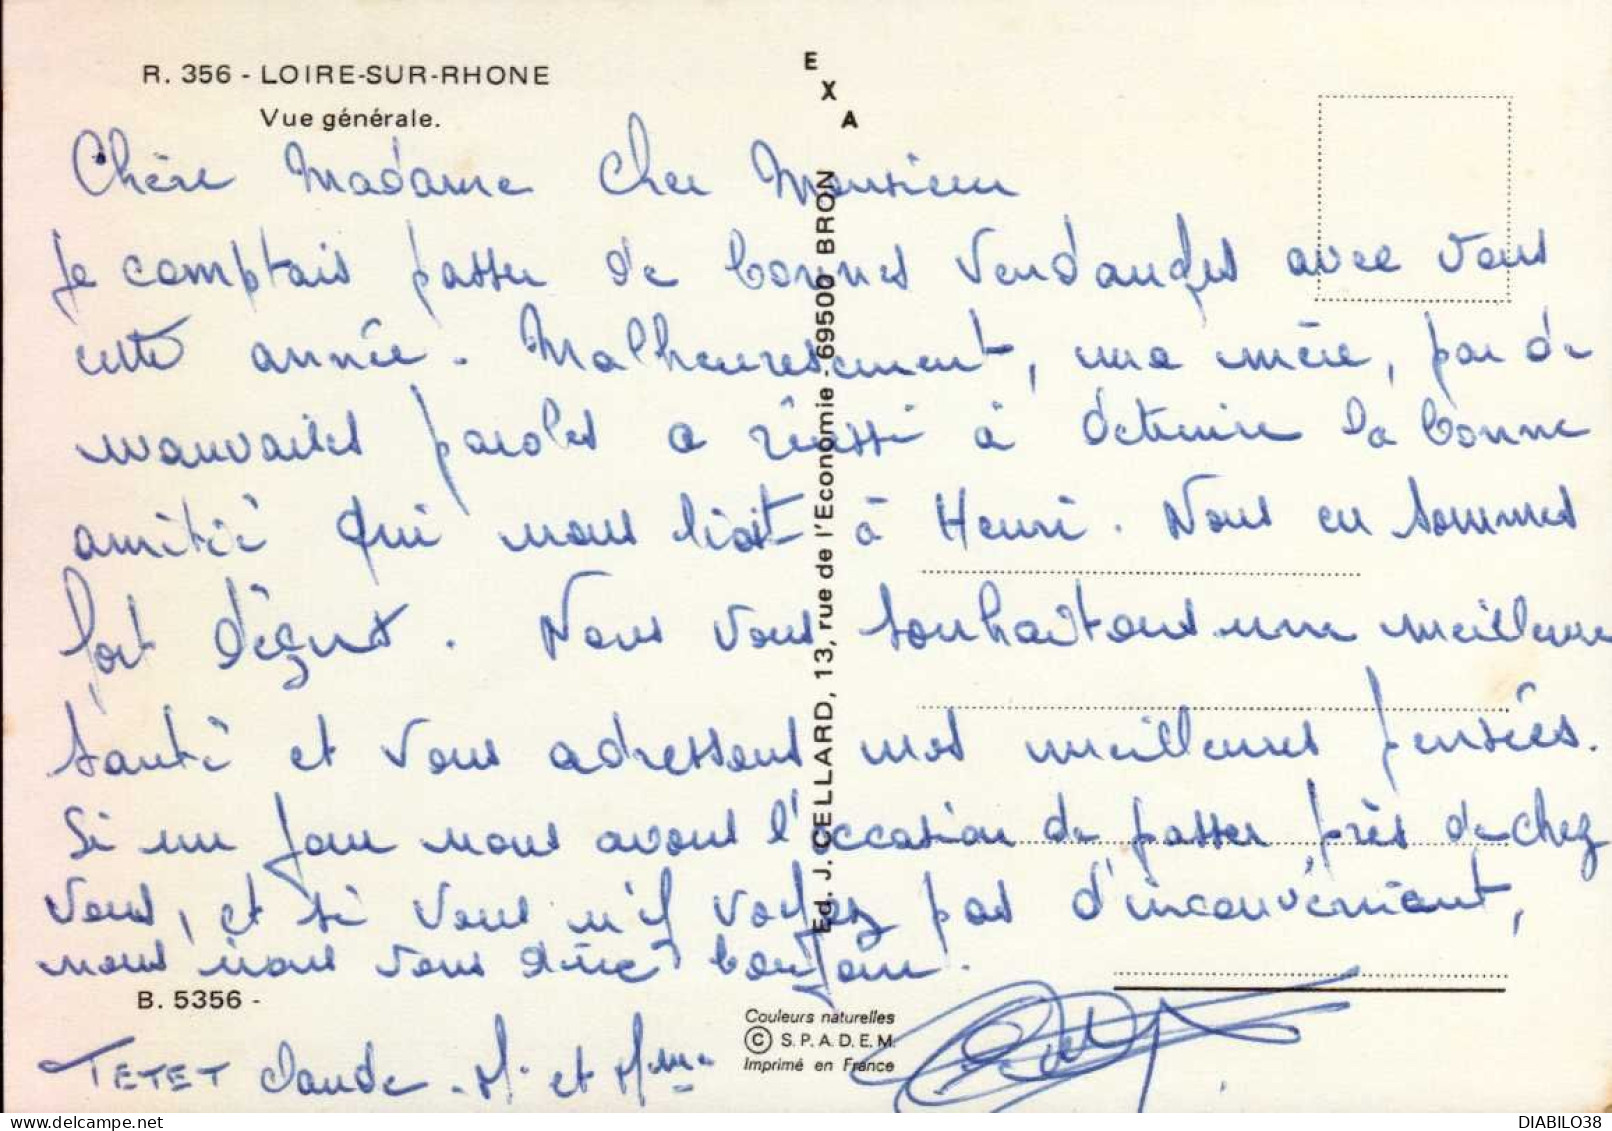 R. 356 - LOIRE-SUR-RHONE
Vue générale.
E
X
A
Chère Madame Cher Monsieur
Je comptais passer de bonnes vendanges avec vous
cette année. Malheureusement, une mère, par de
mauvaises paroles a réussi à détruire la bonne
amitié qui nous liait à Henri. Nous en sommes
fort déçus. Nous vous souhaitons une meilleure
santé et vous adressons nos meilleures pensées.
Si un jour nous avons l'occasion de passer près de chez
vous, et si vous n'y voyez pas d'inconvénient,
nous irons vous dire bonjour.
B. 5356 -
TETET Claude - Mr et Mme
Ed. J. CELLARD, 13, rue de l'Economie - 69500 BRON
Couleurs naturelles
© S.P.A.D.E.M.
Imprimé en France
DIABILO38